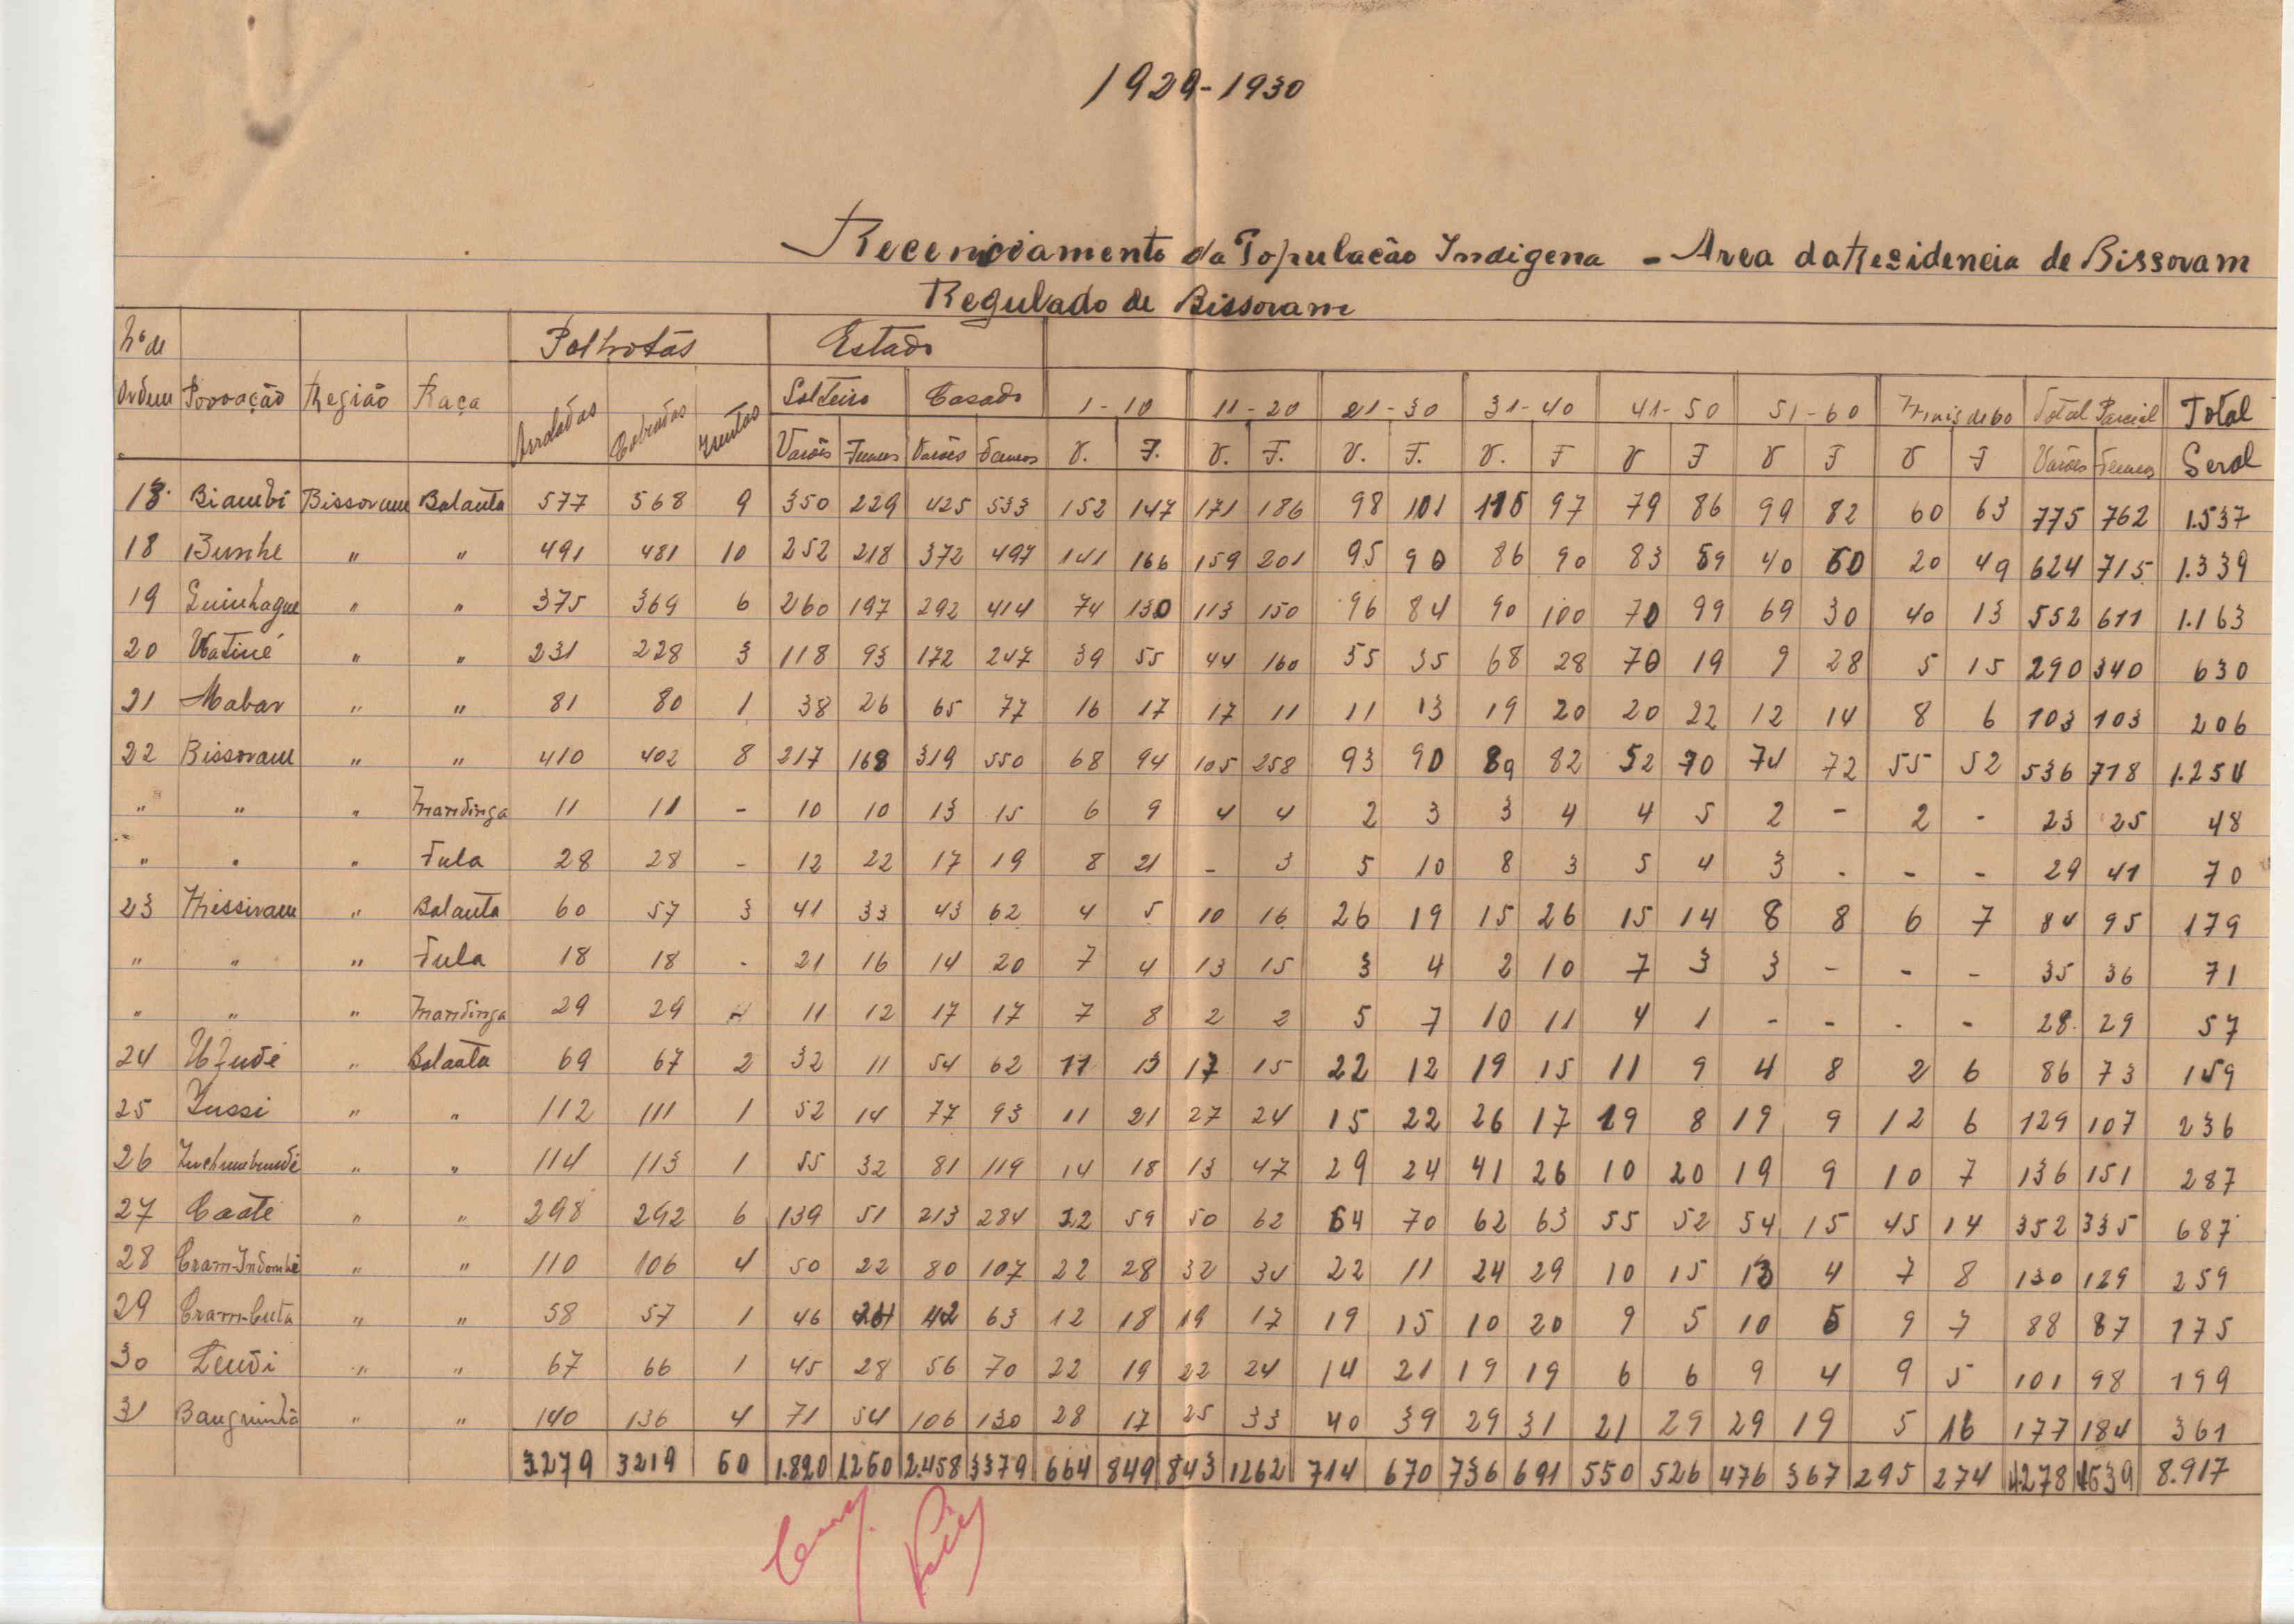 1929-1930
Recenciamento da População Indigena - Area da Residencia de Bissoram
Regulado de Bissoram
Nº de Palhotas Estado
Ordem Povoação Região Raça Arroladas Cobradas Izentas Solteiro Casado 1-10 11-20 21-30 31-40 41-50 51-60 Mais de 60 Total Parcial Total
Varões Femeas Varões Femeas V. F. V. F. V. F. V. F V F V F V F Varões Femeas Geral
18 Biambi Bissoram Balanta 577 568 9 350 229 425 533 152 147 171 186 98 101 116 97 79 86 99 82 60 63 775 762 1.537
18 Bunhe " " 491 481 10 252 218 372 497 141 166 159 201 95 90 86 90 83 59 40 60 20 49 624 715 1.339
19 Quinhaque " " 375 369 6 260 197 292 414 74 130 113 150 96 84 90 100 70 99 69 30 40 13 552 611 1.163
20 Watiné " " 231 228 3 118 93 172 247 39 55 44 160 55 35 68 28 70 19 9 28 5 15 290 340 630
21 Mabar " " 81 80 1 38 26 65 77 16 17 17 11 11 13 19 20 20 22 12 14 8 6 103 103 206
22 Bissoram " " 410 402 8 217 168 319 550 68 94 105 258 93 90 89 82 52 70 74 72 55 52 536 718 1.254
" " " Mandinga 11 11 - 10 10 13 15 6 9 4 4 2 3 3 4 4 5 2 - 2 - 23 25 48
" " " Fula 28 28 - 12 22 17 19 8 21 - 3 5 10 8 3 5 4 3 - - - 29 41 70
23 Missiram " Balanta 60 57 3 41 33 43 62 4 5 10 16 26 19 15 26 15 14 8 8 6 7 84 95 179
" " " Fula 18 18 - 21 16 14 20 7 4 13 15 3 4 2 10 7 3 3 - - - 35 36 71
" " " Mandinga 29 29 - 11 12 17 17 7 8 2 2 5 7 10 11 4 1 - - - - 28 29 57
24 " Balanta 69 67 2 32 11 54 62 11 13 17 15 22 12 19 15 11 9 4 8 2 6 86 73 159
25 " " 112 111 1 52 14 77 93 11 21 27 24 15 22 26 17 19 8 19 9 12 6 129 107 236
26 " " 114 113 1 55 32 81 119 14 18 13 47 29 24 41 26 10 20 19 9 10 7 136 151 287
27 Caaté " " 298 292 6 139 51 213 284 22 59 50 62 64 70 62 63 55 52 54 15 45 14 352 335 687
28 Cram-Indombé " " 110 106 4 50 22 80 107 22 28 32 34 22 11 24 29 10 15 13 4 7 8 130 129 259
29 Cram-Cuta " " 58 57 1 46 24 42 63 12 18 19 17 19 15 10 20 9 5 10 5 9 7 88 87 175
30 " " 67 66 1 45 28 56 70 22 19 22 24 14 21 19 19 6 6 9 4 9 5 101 98 199
31 " " 140 136 4 71 54 106 130 28 17 25 33 40 39 29 31 21 29 29 19 5 16 177 184 361
3279 3219 60 1.820 1.260 2.458 3379 664 849 843 1262 714 670 736 691 550 526 476 367 295 274 4.278 4639 8.917